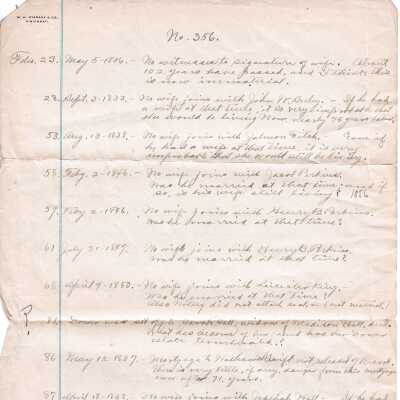 No. 356.
Fdio. 23. May 5-1806. - No witnesses to signature of wife. About
102 years have passed, and I think this
is now immaterial.
28. Sept. 3-1833. - No wife joins with John W. - If he had
a wife at that time, it is very improbable that
she would be living now, nearly 75 years later.
53. Aug. 13-1838. - No wife joins with Fitch. Even if
he had a wife at that time, it is very
improbable that she would still be living.
55. Feby. 2-1846. - No wife joins with Jacob Perkins.
Was he married at that time - and if
so, is his wife still living? 1856
59. Feby 2-1846. - No wife joins with Henry B. Perkins.
Was he married at that time?
61. July 31-1849. - No wife joins with Henry B. Perkins.
Was he married at that time?
65. April 9-1850. - No wife joins with Leicester King.
Was he married at that time?
Also Notary did not attach seal, or (not material)
?
Hall, widow of Madison Hall, died.
What has become of her and has her dower
estate terminated?
86. May 12-1837. - Mortgage to Nathaniel Swift not released of Record.
There is very little, if any, danger from this mortgage
now after 71 years.
87. April 18- - No wife joins with Hall. - If he had